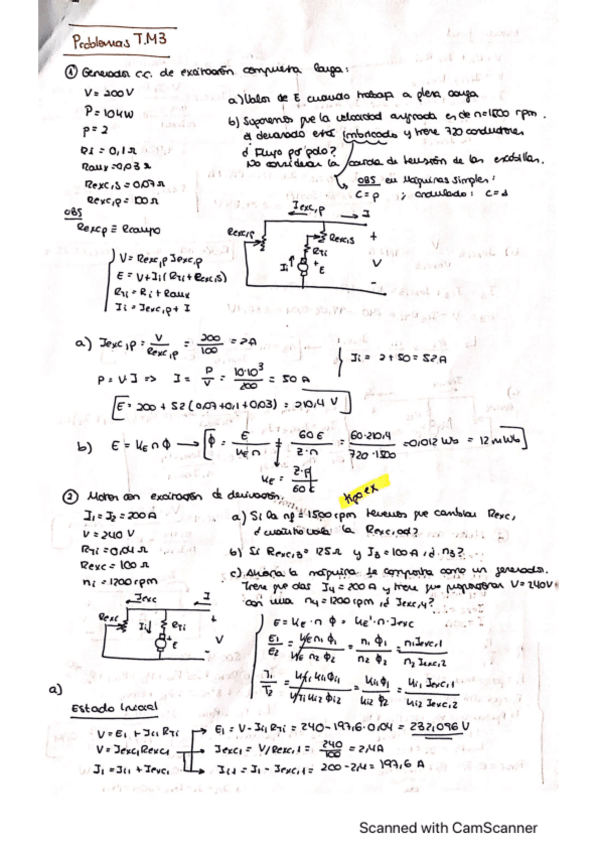 Problemas T.M3
① Generador c.c. de excitación compuesta larga:
V = 200V
P = 10kW
p = 2
Ri = 0,1Ω
Raux = 0,03Ω
Rexc,s = 0,07Ω
Rexc,p = 100Ω
OBS
Rexcp ≡ Rcampo
a) Valor de E cuando trabaja a plena carga
b) Suponemos que la velocidad asignada es de n=1500 rpm.
el devanado está imbricado y tiene 720 conductores
¿ Flujo por polo?
No considerar la caída de tensión de las escobillas.
OBS en máquinas simples:
C=p ; ondulado: C=1
Iexc,p
I
Rexc,p
Rexc,s
Rri
Ii
+
E
+
V
-
V = Rexc,p Iexc,p
E = V + Ii (Rri + Rexc,s)
Rri = Ri + Raux
Ii = Iexc,p + I
a) Iexc,p = V/Rexc,p = 200/100 = 2A
Ii = 2 + 50 = 52A
P = V I => I = P/V = 10·10³/200 = 50 A
E = 200 + 52 (0,07+0,1+0,03) = 210,4 V
b) E = KE n Φ → Φ = E/(KE n) = 60 E/(Z·n) = 60·210,4/(720·1500) = 0,012 Wb = 12 mWb
KE = Z·p/(60 c)
② Motor con excitación de derivación.
tipo ex
I1 = I2 = 200A
V = 240V
Rri = 0,04Ω
Rexc = 100Ω
n1 = 1200rpm
a) Si la n2 = 1500rpm tenemos que cambiar Rexc,
¿ cuánto vale la Rexc,2?
b) Si Rexc,3 = 125Ω y I3 = 100A ¿ n3?
c) Ahora la máquina se comporta como un generador.
Tiene que dar I4 = 200A y tiene que proporcionar V=240V
con una n4 = 1200rpm ¿ Iexc,4?
Iexc
I
Rexc
Ii
Rri
+
E
+
V
-
E = KE · n Φ = KE' · n · Iexc
E1/E2 = KE n1 Φ1/(KE n2 Φ2) = n1 Φ1/(n2 Φ2) = n1 Iexc,1/(n2 Iexc,2)
a)
Estado Inicial
V = E1 + Ii1 Rri → E1 = V - Ii1 Rri = 240 - 197,6·0,04 = 232,096 V
V = Iexc1 Rexc1 → Iexc1 = V/Rexc,1 = 240/100 = 2,4A
I1 = Ii1 + Iexc1 → Ii,1 = I1 - Iexc,1 = 200 - 2,4 = 197,6 A
Scanned with CamScanner